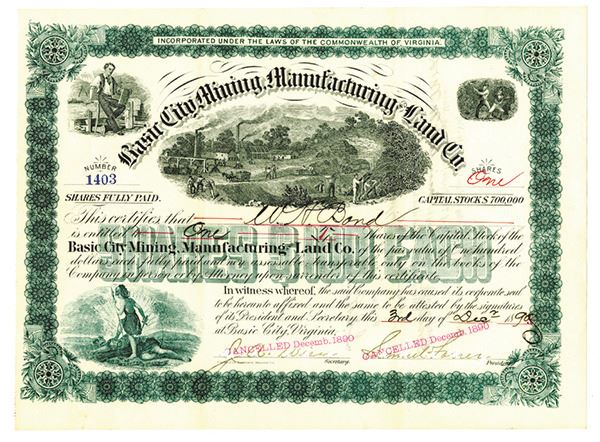 INCORPORATED UNDER THE LAWS OF THE COMMONWEALTH OF VIRGINIA.
Basic City Mining, Manufacturing and Land Co.
NUMBER
1403
SHARES
One
SHARES FULLY PAID.
CAPITAL STOCK $700,000
This certifies that W H Bond
is entitled to One Shares of the Capital Stock of the
Basic City Mining, Manufacturing and Land Co. of the par value of One hundred
dollars each fully paid and non assessable transferable only on the books of the
Company in person or by Attorney upon surrender of this certificate.
In witness whereof, the said Company has caused its corporate seal
to be hereunto affixed and the same to be attested by the signatures
of its President and Secretary, this 3rd day of Dec 1890
at Basic City, Virginia.
CANCELLED Decemb. 1890
CANCELLED Decemb. 1890
Secretary.
President